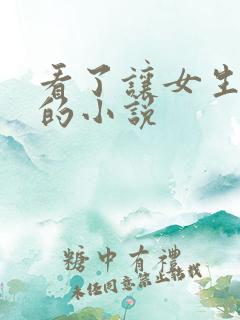 看了讓女生
的小説
糖中有禮
未经同意禁止转载